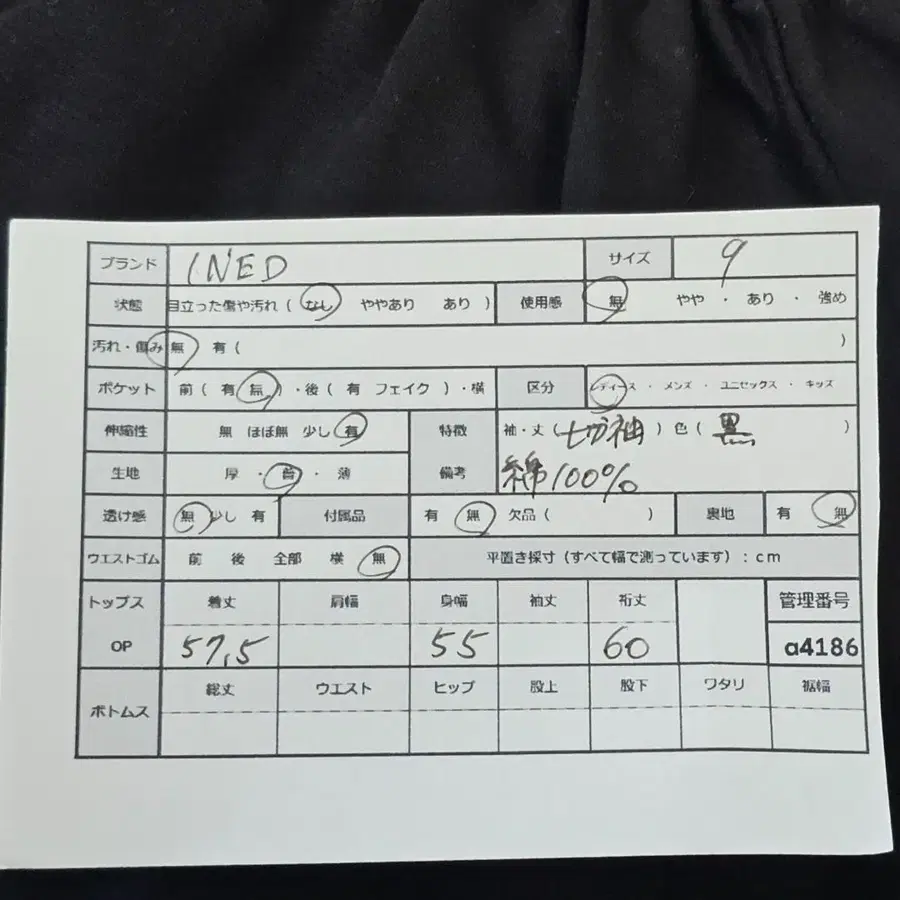 ブランド INED サイズ 9
状態 目立った傷や汚れ ( なし ややあり あり ) 使用感 無 やや ・ あり ・ 強め
汚れ・傷み 無 有 ( )
ポケット 前 ( 有 無 ) ・後 ( 有 フェイク ) ・横 区分 レディース ・ メンズ ・ ユニセックス ・ キッズ
伸縮性 無 ほぼ無 少し 有 特徴 袖・丈 ( 七分袖 ) 色 ( 黒 )
生地 厚 ・ 普 ・ 薄 備考 綿100%
透け感 無 少し 有 付属品 有 無 欠品 ( ) 裏地 有 無
ウエストゴム 前 後 全部 横 無 平置き採寸 (すべて幅で測っています) : cm
トップス 着丈 肩幅 身幅 袖丈 裄丈 管理番号
OP 57.5 55 60 a4186
ボトムス 総丈 ウエスト ヒップ 股上 股下 ワタリ 裾幅